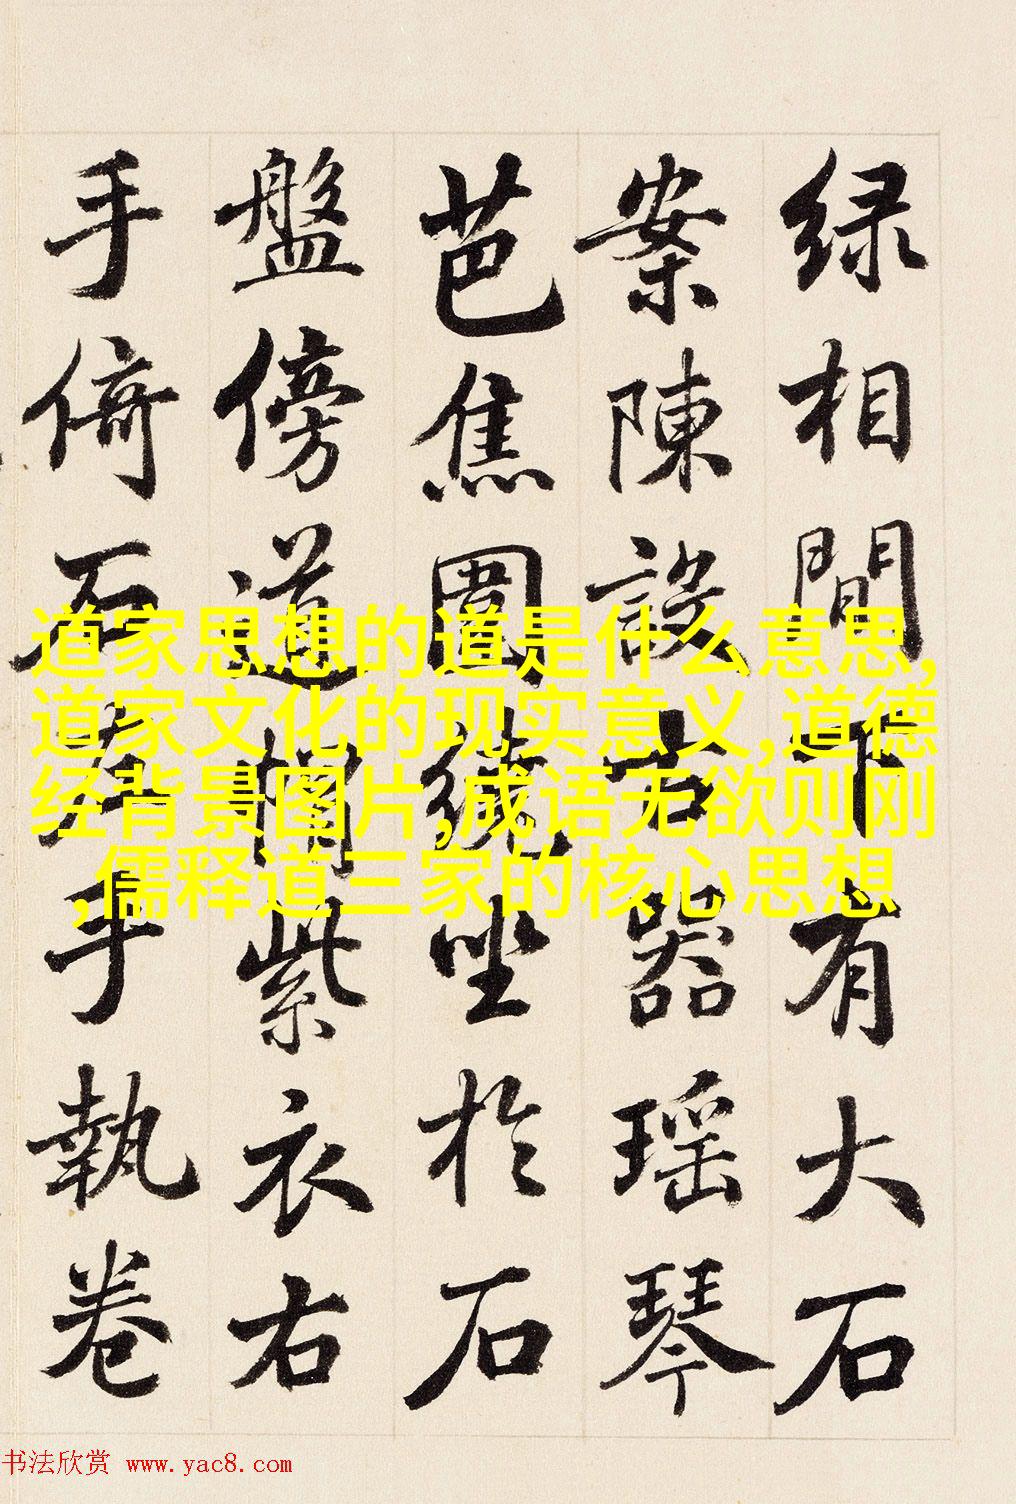 绿相間下有大石
案陳設古器瑶琴
芭焦圍繞坐於石
盤傍道帽紫衣右
手倚石左手執卷
道家思想的道是什么意思,
道家文化的现实意义,道德
经背景图片,成语无欲则刚
,儒释道三家的核心思想
书法欣赏 www.yac8.com